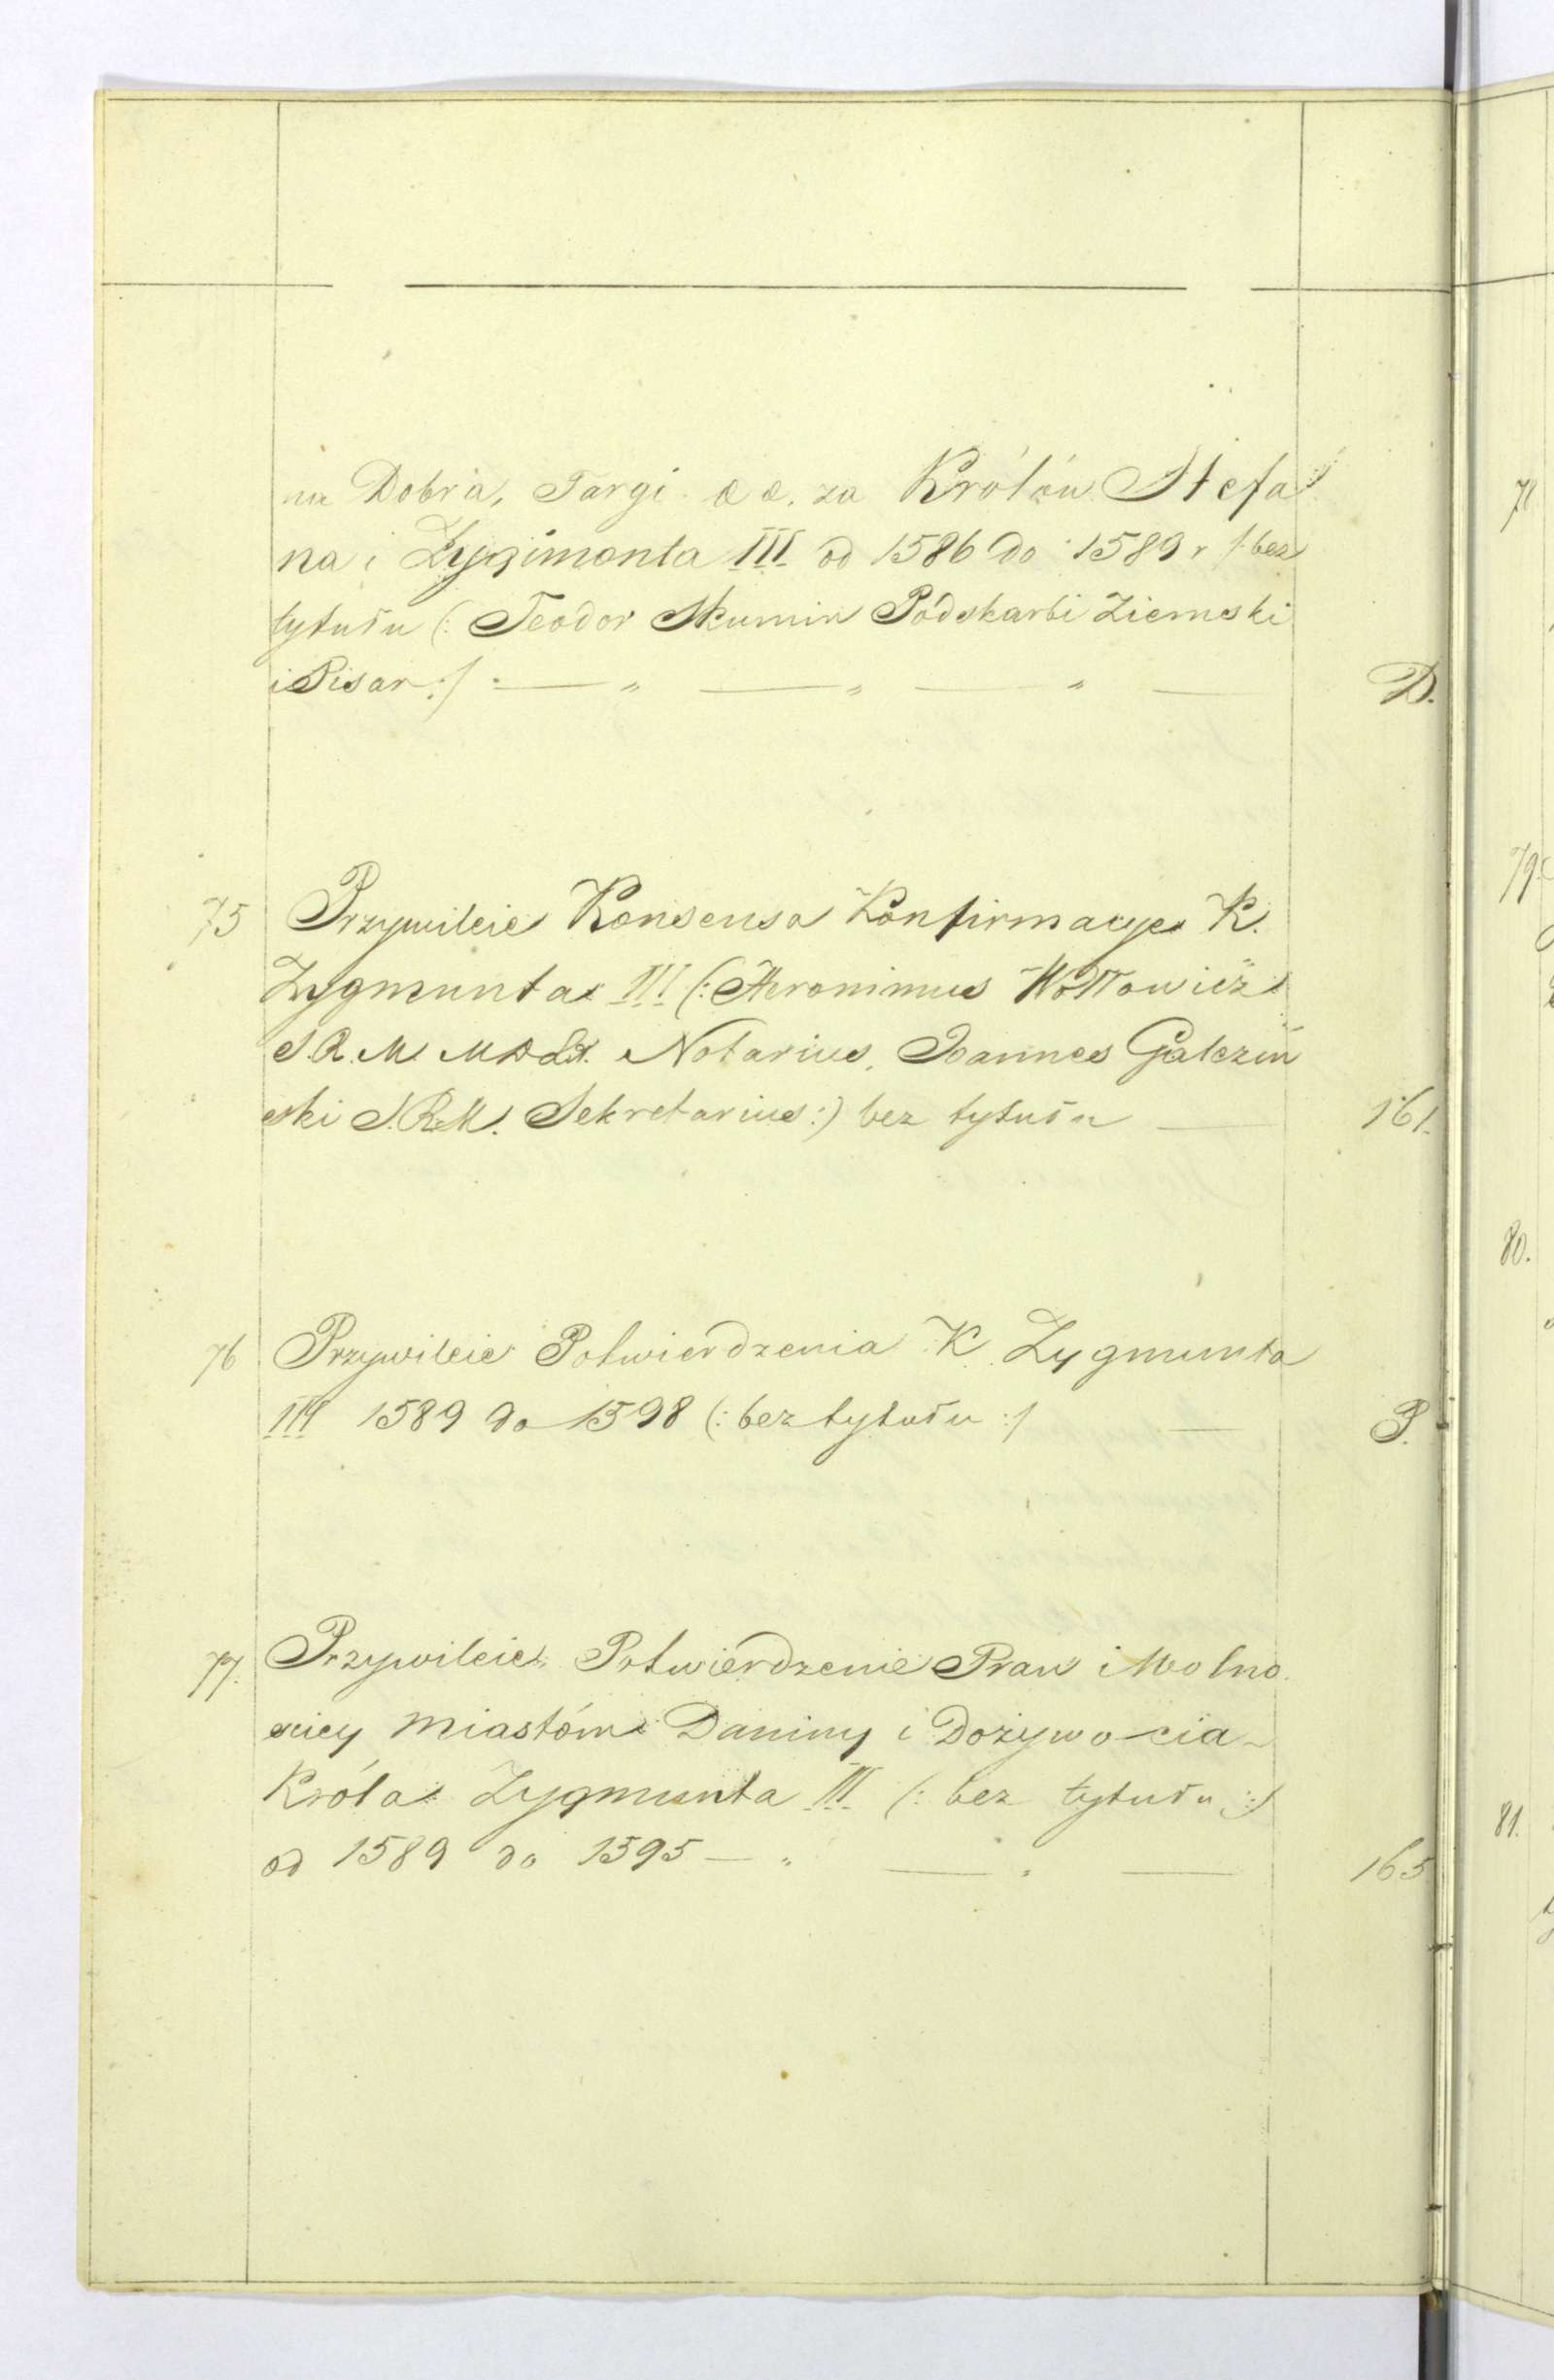 na Dobra, Targi &&. za Królów Stefa
na i Zygimonta III od 1586 do 1589 r /: bez
tytułu (: Teodor Skumin Podskarbi Ziemski
i Pisar :/ — " — " — " — D.
75 Przywileie Konsensa Konfirmacye K.
Zygmunta III (: Heronimus Wołłowicz
S. R. M. M D Lit. Notarius, Joannes Galcziń
ski S. R. M. Sekretarius :) bez tytułu — 161.
76 Przywileie Potwierdzenia K Zygmunta
III 1589 do 1598 (: bez tytułu :/ — P.
77. Przywileie, Potwierdzenie Praw i Wolno
sciey Miastóm Daniny i Dożywocia
Króla Zygmunta III (: bez tytułu :/
od 1589 do 1595 — " — " — 165
79.
80.
81.